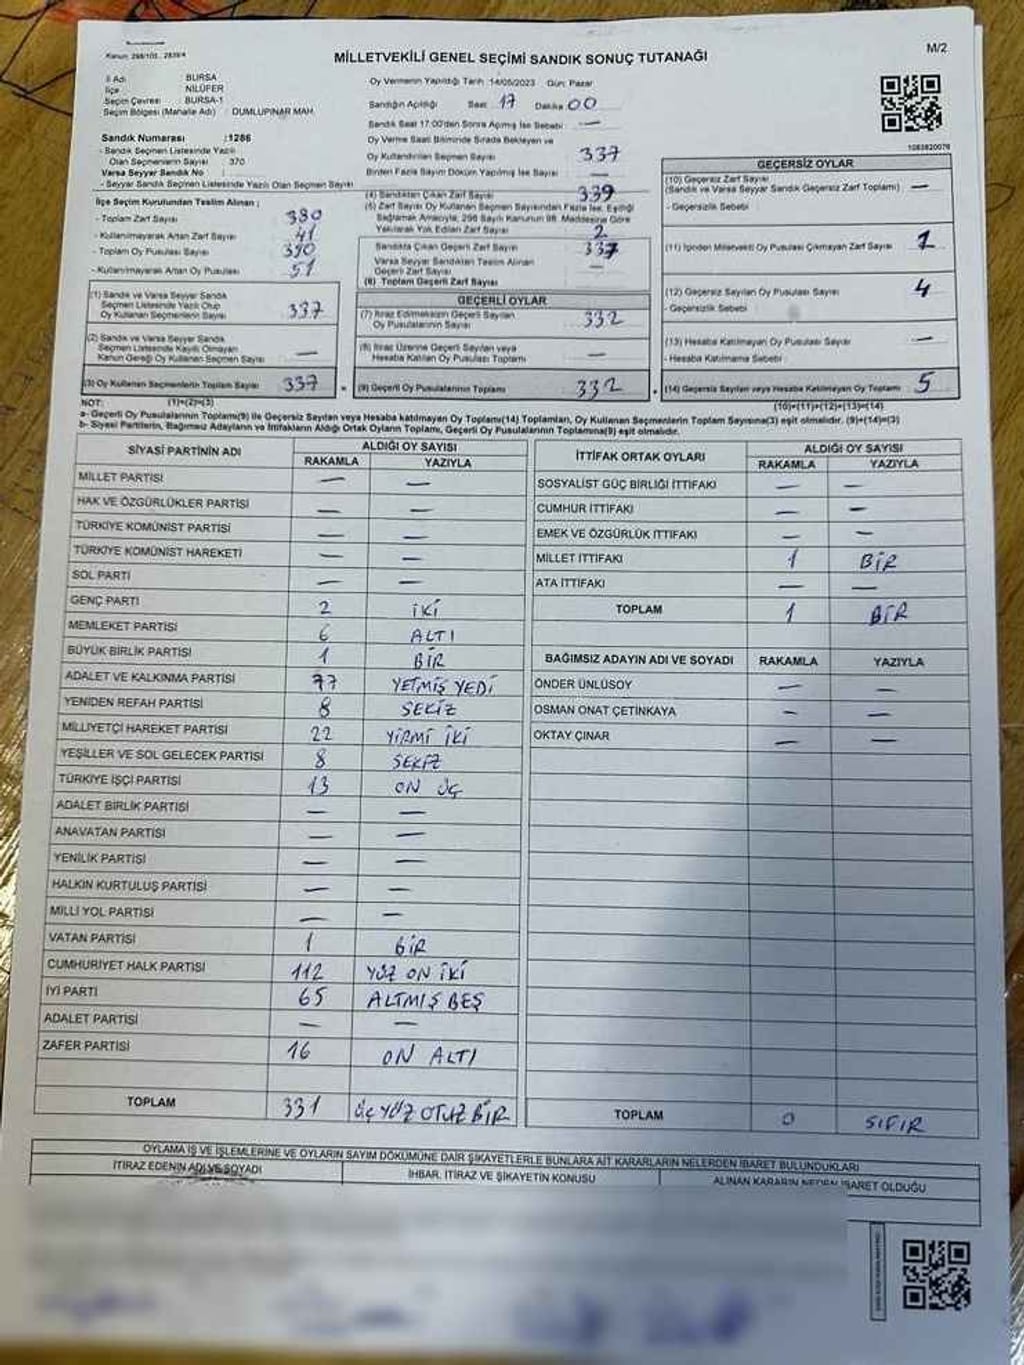 MİLLETVEKİLİ GENEL SEÇİMİ SANDIK SONUÇ TUTANAĞI
M/2
İl Adı : BURSA
İlçe : NİLÜFER
Seçim Çevresi : BURSA-1
Seçim Bölgesi (Mahalle Adı) : DUMLUPINAR MAH.
Sandık Numarası :1286
- Sandık Seçmen Listesinde Yazılı
Olan Seçmenlerin Sayısı : 370
Varsa Seyyar Sandık No :
- Seyyar Sandık Seçmen Listesinde Yazılı Olan Seçmen Sayısı
Oy Vermenin Yapıldığı Tarih :14/05/2023 Gün: Pazar
Sandığın Açıldığı Saat 17 Dakika 00
Sandık Saat 17:00'den Sonra Açılmış İse Sebebi: —
Oy Verme Saati Bitiminde Sırada Bekleyen ve
Oy Kullandırılan Seçmen Sayısı 337
Birden Fazla Sayım Döküm Yapılmış İse Sayısı —
İlçe Seçim Kurulundan Teslim Alınan ;
- Toplam Zarf Sayısı 380
- Kullanılmayarak Artan Zarf Sayısı 41
- Toplam Oy Pusulası Sayısı 390
- Kullanılmayarak Artan Oy Pusulası 51
(1) Sandık ve Varsa Seyyar Sandık
Seçmen Listesinde Yazılı Olup
Oy Kullanan Seçmenlerin Sayısı 337
(2) Sandık ve Varsa Seyyar Sandık
Seçmen Listesinde Kayıtlı Olmayan
Kanun Gereği Oy Kullanan Seçmen Sayısı —
(3) Oy Kullanan Seçmenlerin Toplam Sayısı 337
(4) Sandıktan Çıkan Zarf Sayısı 339
(5) Zarf Sayısı Oy Kullanan Seçmen Sayısından Fazla İse, Eşitliği
Sağlamak Amacıyla, 298 Sayılı Kanunun 98. Maddesine Göre
Yakılarak Yok Edilen Zarf Sayısı 2
Sandıkta Çıkan Geçerli Zarf Sayısı 337
Varsa Seyyar Sandıktan Teslim Alınan
Geçerli Zarf Sayısı —
(6) Toplam Geçerli Zarf Sayısı
GEÇERLİ OYLAR
(7) İtiraz Edilmeksizin Geçerli Sayılan
Oy Pusulalarının Sayısı 332
(8) İtiraz Üzerine Geçerli Sayılan veya
Hesaba Katılan Oy Pusulası Toplamı —
(9) Geçerli Oy Pusulalarının Toplamı 332
1083820076
GEÇERSİZ OYLAR
(10) Geçersiz Zarf Sayısı
(Sandık ve Varsa Seyyar Sandık Geçersiz Zarf Toplamı) —
- Geçersizlik Sebebi :
(11) İçinden Milletvekili Oy Pusulası Çıkmayan Zarf Sayısı 1
(12) Geçersiz Sayılan Oy Pusulası Sayısı 4
- Geçersizlik Sebebi :
(13) Hesaba Katılmayan Oy Pusulası Sayısı —
- Hesaba Katılmama Sebebi :
(14) Geçersiz Sayılan veya Hesaba Katılmayan Oy Toplamı 5
NOT: (1)+(2)=(3) (10)+(11)+(12)+(13)=(14)
a- Geçerli Oy Pusulalarının Toplamı(9) ile Geçersiz Sayılan veya Hesaba katılmayan Oy Toplamı(14) Toplamları, Oy Kullanan Seçmenlerin Toplam Sayısına(3) eşit olmalıdır. (9)+(14)=(3)
b- Siyasi Partilerin, Bağımsız Adayların ve İttifakların Aldığı Ortak Oyların Toplamı, Geçerli Oy Pusulalarının Toplamına(9) eşit olmalıdır.
SİYASİ PARTİNİN ADI ALDIĞI OY SAYISI
RAKAMLA YAZIYLA
MİLLET PARTİSİ — —
HAK VE ÖZGÜRLÜKLER PARTİSİ — —
TÜRKİYE KOMÜNİST PARTİSİ — —
TÜRKİYE KOMÜNİST HAREKETİ — —
SOL PARTİ — —
GENÇ PARTİ 2 İKİ
MEMLEKET PARTİSİ 6 ALTI
BÜYÜK BİRLİK PARTİSİ 1 BİR
ADALET VE KALKINMA PARTİSİ 77 YETMİŞ YEDİ
YENİDEN REFAH PARTİSİ 8 SEKİZ
MİLLİYETÇİ HAREKET PARTİSİ 22 YİRMİ İKİ
YEŞİLLER VE SOL GELECEK PARTİSİ 8 SEKİZ
TÜRKİYE İŞÇİ PARTİSİ 13 ON ÜÇ
ADALET BİRLİK PARTİSİ — —
ANAVATAN PARTİSİ — —
YENİLİK PARTİSİ — —
HALKIN KURTULUŞ PARTİSİ — —
MİLLİ YOL PARTİSİ — —
VATAN PARTİSİ 1 BİR
CUMHURİYET HALK PARTİSİ 112 YÜZ ON İKİ
İYİ PARTİ 65 ALTMIŞ BEŞ
ADALET PARTİSİ — —
ZAFER PARTİSİ 16 ON ALTI
TOPLAM 331 ÜÇ YÜZ OTUZ BİR
İTTİFAK ORTAK OYLARI ALDIĞI OY SAYISI
RAKAMLA YAZIYLA
SOSYALİST GÜÇ BİRLİĞİ İTTİFAKI — —
CUMHUR İTTİFAKI — —
EMEK VE ÖZGÜRLÜK İTTİFAKI — —
MİLLET İTTİFAKI 1 BİR
ATA İTTİFAKI — —
TOPLAM 1 BİR
BAĞIMSIZ ADAYIN ADI VE SOYADI RAKAMLA YAZIYLA
ÖNDER ÜNLÜSOY — —
OSMAN ONAT ÇETİNKAYA — —
OKTAY ÇINAR — —
TOPLAM 0 SIFIR
OYLAMA İŞ VE İŞLEMLERİNE VE OYLARIN SAYIM DÖKÜMÜNE DAİR ŞİKAYETLERLE BUNLARA AİT KARARLARIN NELERDEN İBARET BULUNDUKLARI
İTİRAZ EDENİN ADI VE SOYADI İHBAR, İTİRAZ VE ŞİKAYETİN KONUSU ALINAN KARARIN NEDEN İBARET OLDUĞU